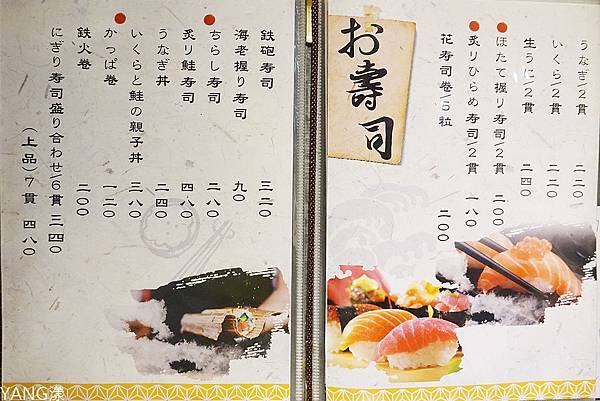 お壽司
うなぎ/2貫 二二0
いくら/2貫 二二0
生うに/2貫 二四0
ほたて握り寿司/2貫 二00
炙りひらめ寿司/2貫 一八0
花寿司卷/5粒 二00
鉄砲寿司 三二0
海老握り寿司 九0
ちらし寿司 二八0
炙り鮭寿司 四八0
うなぎ丼 二四0
いくらと鮭の親子丼 三八0
かっぱ卷 一二0
鉄火卷 二00
にぎり寿司盛り合わせ/6貫 三四0
(上品)7貫 四八0
YANG漾